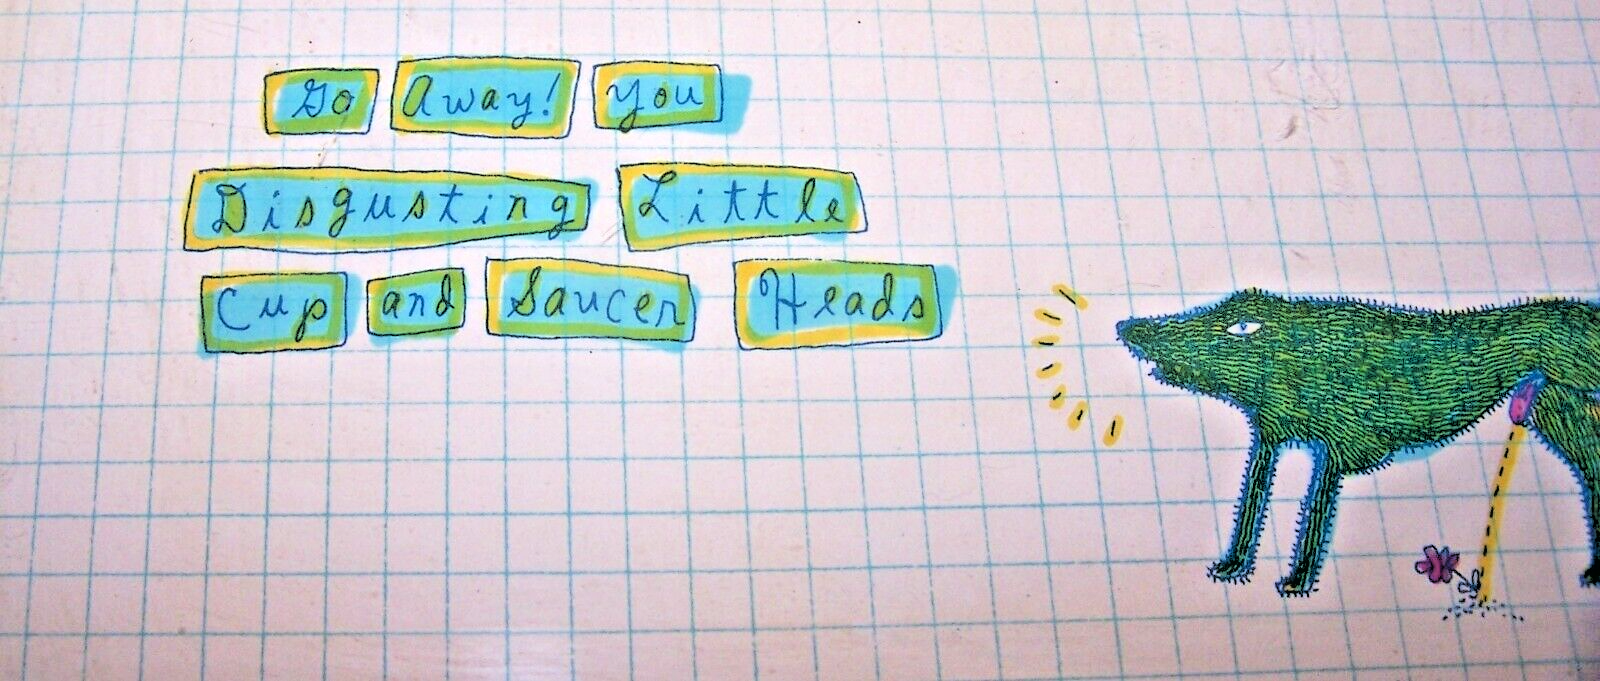 Go Away! You
Disgusting Little
Cup and Saucer Heads